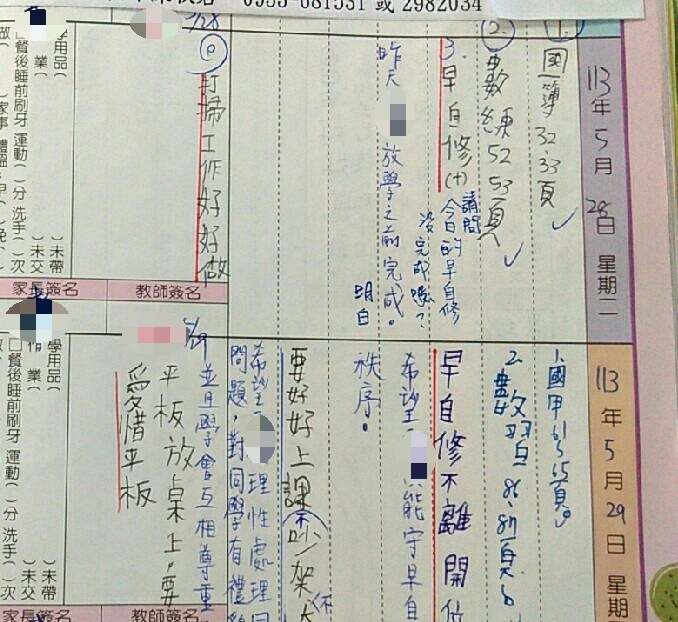 0955-681531 或 2982034
113年 5月 28日 星期二
1. 國簿 32.33頁
2. 數練 52 53頁
3. 早自修(十)
請問今日的早自修沒完成嗎？
昨天 放學之前完成。
明白
5/28
打掃工作好好做
教師簽名
家長簽名
學用品( )未帶
作業( )未交
餐後睡前刷牙 運動( )分 洗手( )次
113年 5月 29日 星期
1. 國甲 15頁。
2. 數習 86.87頁
早自修不離開位
希望 能守早自
秩序。
要好好上課 吵架
希望 理性處理同
問題，對同學有禮貌
並且學會互相尊重
5/29
平板放桌上，要
愛惜平板
教師簽名
家長簽名
學用品( )未帶
作業( )未交
餐後睡前刷牙 運動( )分 洗手( )次